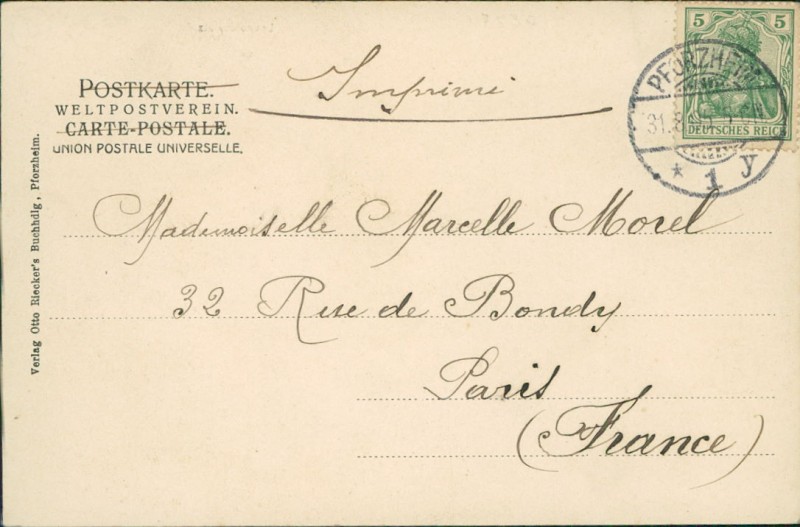 POSTKARTE.
WELTPOSTVEREIN.
CARTE-POSTALE.
UNION POSTALE UNIVERSELLE.
Imprimé
5 5
DEUTSCHES REICH
PFORZHEIM
31.8
* 1 y
Mademoiselle Marcelle Morel
32 Rue de Bondy
Paris
(France)
Verlag Otto Riecker's Buchhdlg, Pforzheim.